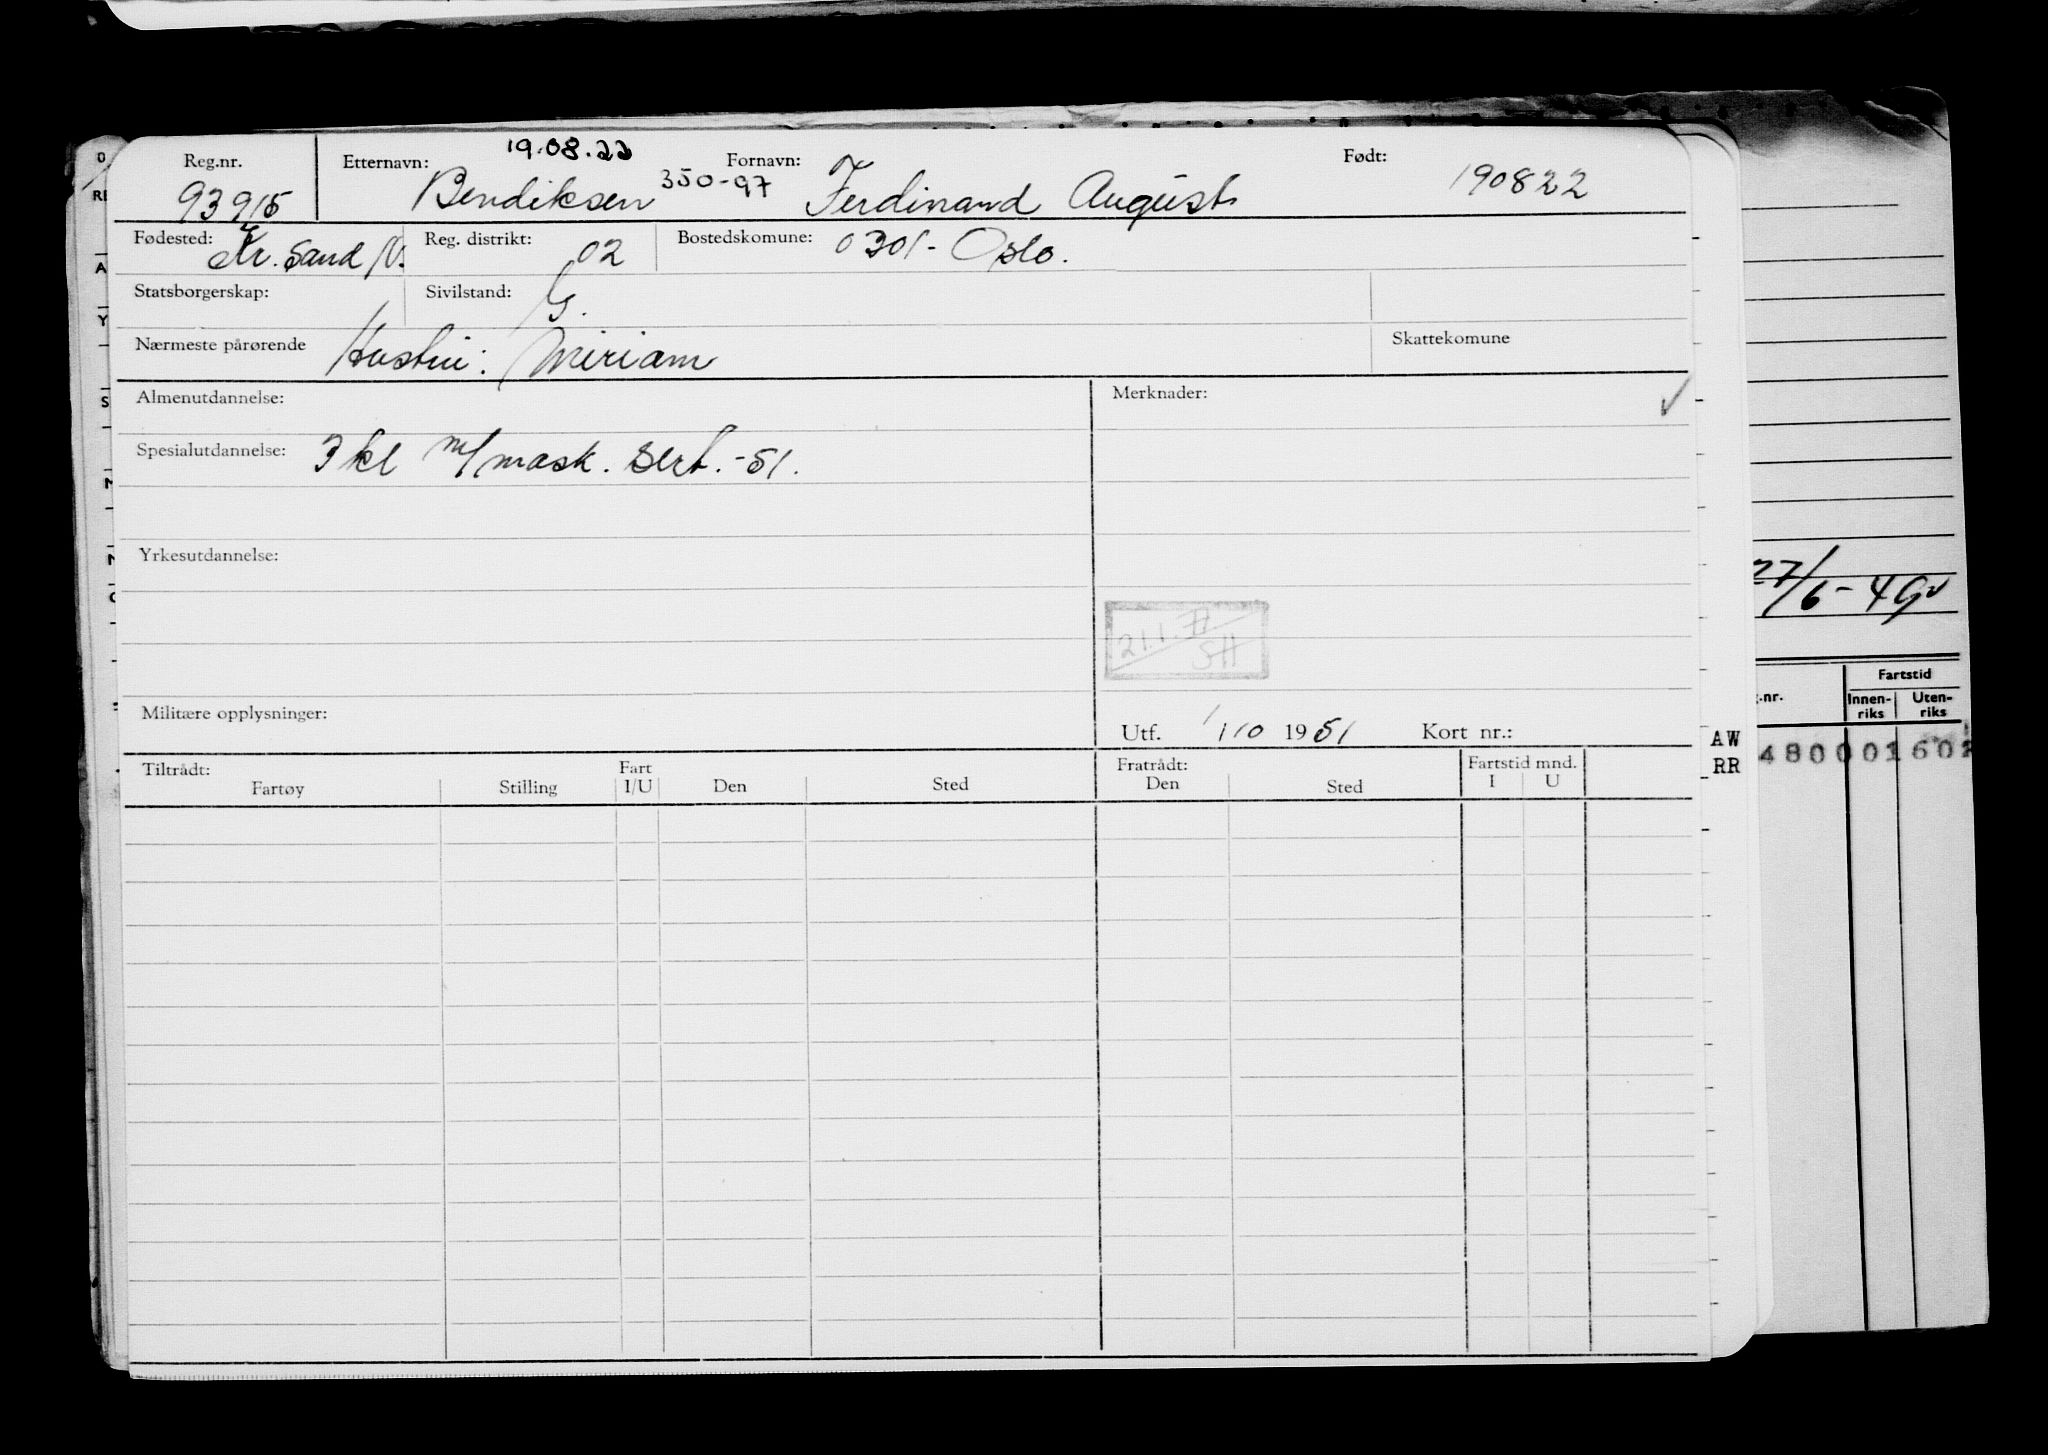 19.08.22
Reg.nr. Etternavn: Fornavn: Født:
93915 Bendiksen 350-97 Ferdinand August 190822
Fødested: Kr. Sand N. Reg. distrikt: 02 Bostedskomune: 0301- Oslo.
Statsborgerskap: Sivilstand: G.
Nærmeste pårørende Hustru: Miriam Skattekomune
Almenutdannelse: Merknader:
Spesialutdannelse: 3 kl m/mask. sert.-51.
Yrkesutdannelse:
27/6-49
21.1.77
SH
Militære opplysninger:
Utf. 1/10 1951 Kort nr.:
Tiltrådt: Fart Fratrådt: Fartstid mnd.
Fartøy Stilling I/U Den Sted Den Sted I U
AW
RR
Fartstid
.nr. Innen- Uten-
riks riks